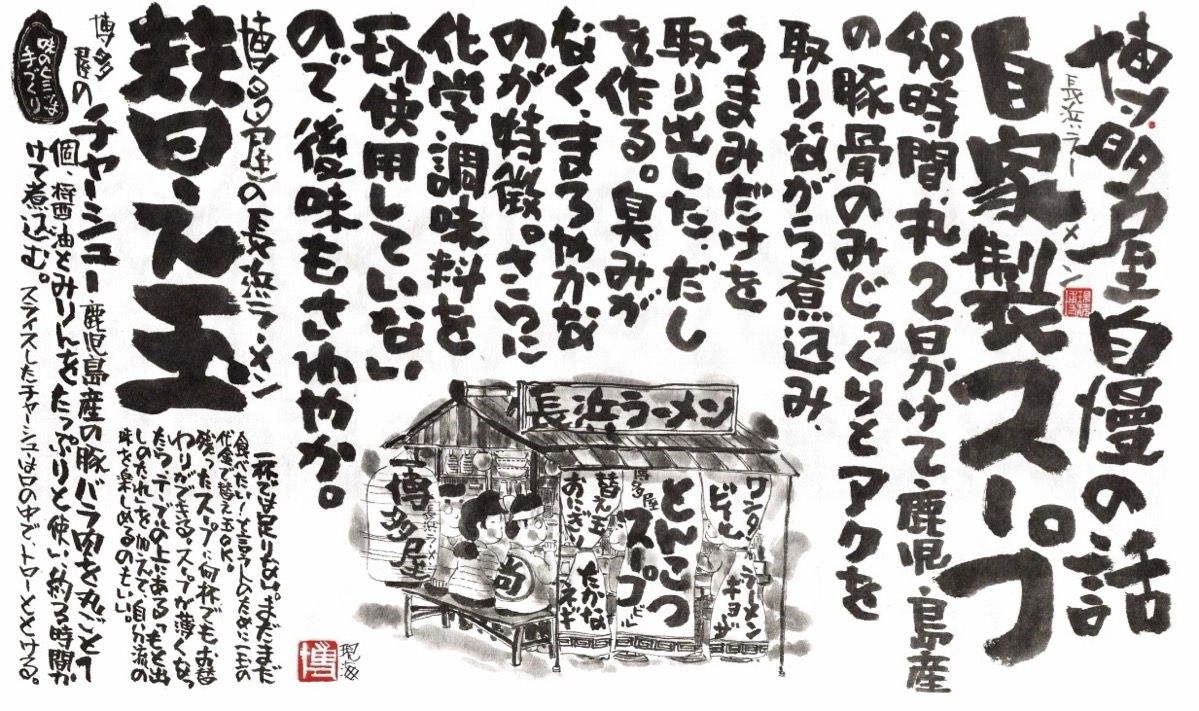 博多屋自慢の話
長浜ラーメン
自家製スープ
48時間、丸2日かけて鹿児島産
の豚骨のみじっくりとアクを
取りながら煮込み、
うまみだけを
取り出した、だし
を作る。臭みが
なく、まろやかな
のが特徴。さらに
化学調味料を
一切使用していない
ので、後味もさわやか。
長浜ラーメン
博多屋
長浜ラーメン
ワンタン
ビール
ラーメン
ギョーザ
とんこつ
スープ
博多屋
替え玉
おにぎり
たかな
ネギ
尚
博
現海
博多屋の長浜ラーメン
替え玉
一杯では足りない。まだまだ
食べたい!と言う人のために一玉の
代金で替え玉OK。
残ったスープに何杯でもお替
わりができる。スープが薄くなっ
たらテーブルの上にあるもと出
しのたれを加えて、自分流の
味を楽しめるのもいい。
博多屋のチャーシュー
鹿児島産の豚バラ肉を丸ごと1
個、醤油とみりんをたっぷりと使い、約3時間か
けて煮込む。スライスしたチャーシューは口の中で、トローととける。
味のことは
手づくり